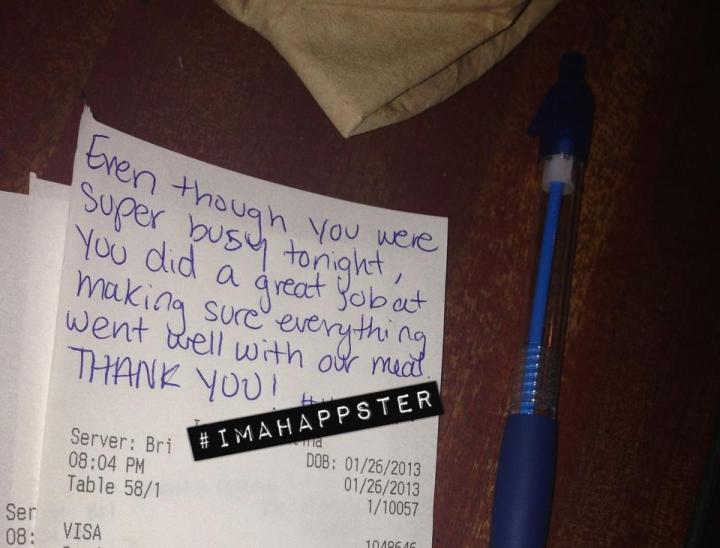 Even though you were
super busy tonight,
you did a great job at
making sure everything
went well with our meal.
THANK YOU!
#IMAHAPPSTER
Server: Bri
DOB: 01/26/2013
08:04 PM
01/26/2013
Table 58/1
1/10057
VISA
Ser
08: